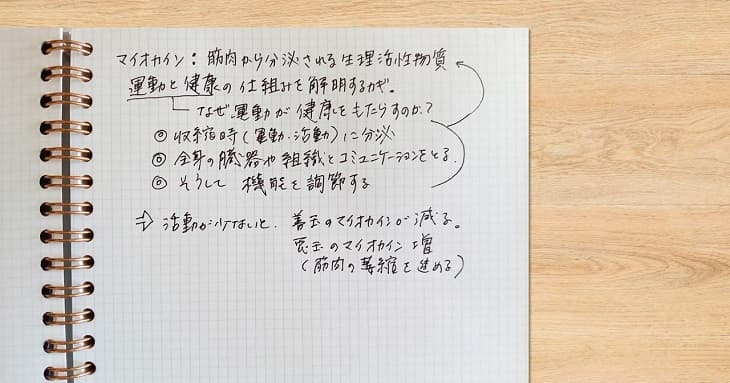 マイオカイン：筋肉から分泌される生理活性物質
運動と健康の仕組みを解明するカギ。
なぜ運動が健康をもたらすのか？
◎ 収縮時（運動・活動）に分泌
◎ 全身の臓器や組織とコミュニケーションをとる.
◎ そうして 機能を調節する
⇒ 活動が少ないと. 善玉のマイオカインが減る。
悪玉のマイオカイン増
（筋肉の萎縮を進める）